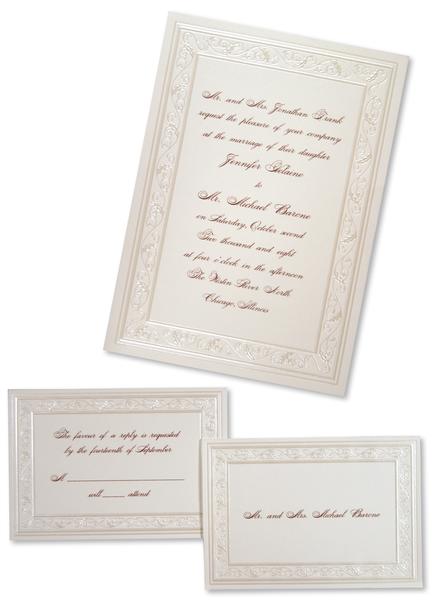 Mr. and Mrs. Jonathan Frank
request the pleasure of your company
at the marriage of their daughter
Jennifer Delaine
to
Mr. Michael Barone
on Saturday, October second
Two thousand and eight
at four o'clock in the afternoon
The Westin River North
Chicago, Illinois
The favour of a reply is requested
by the fourteenth of September
M
will attend
Mr. and Mrs. Michael Barone